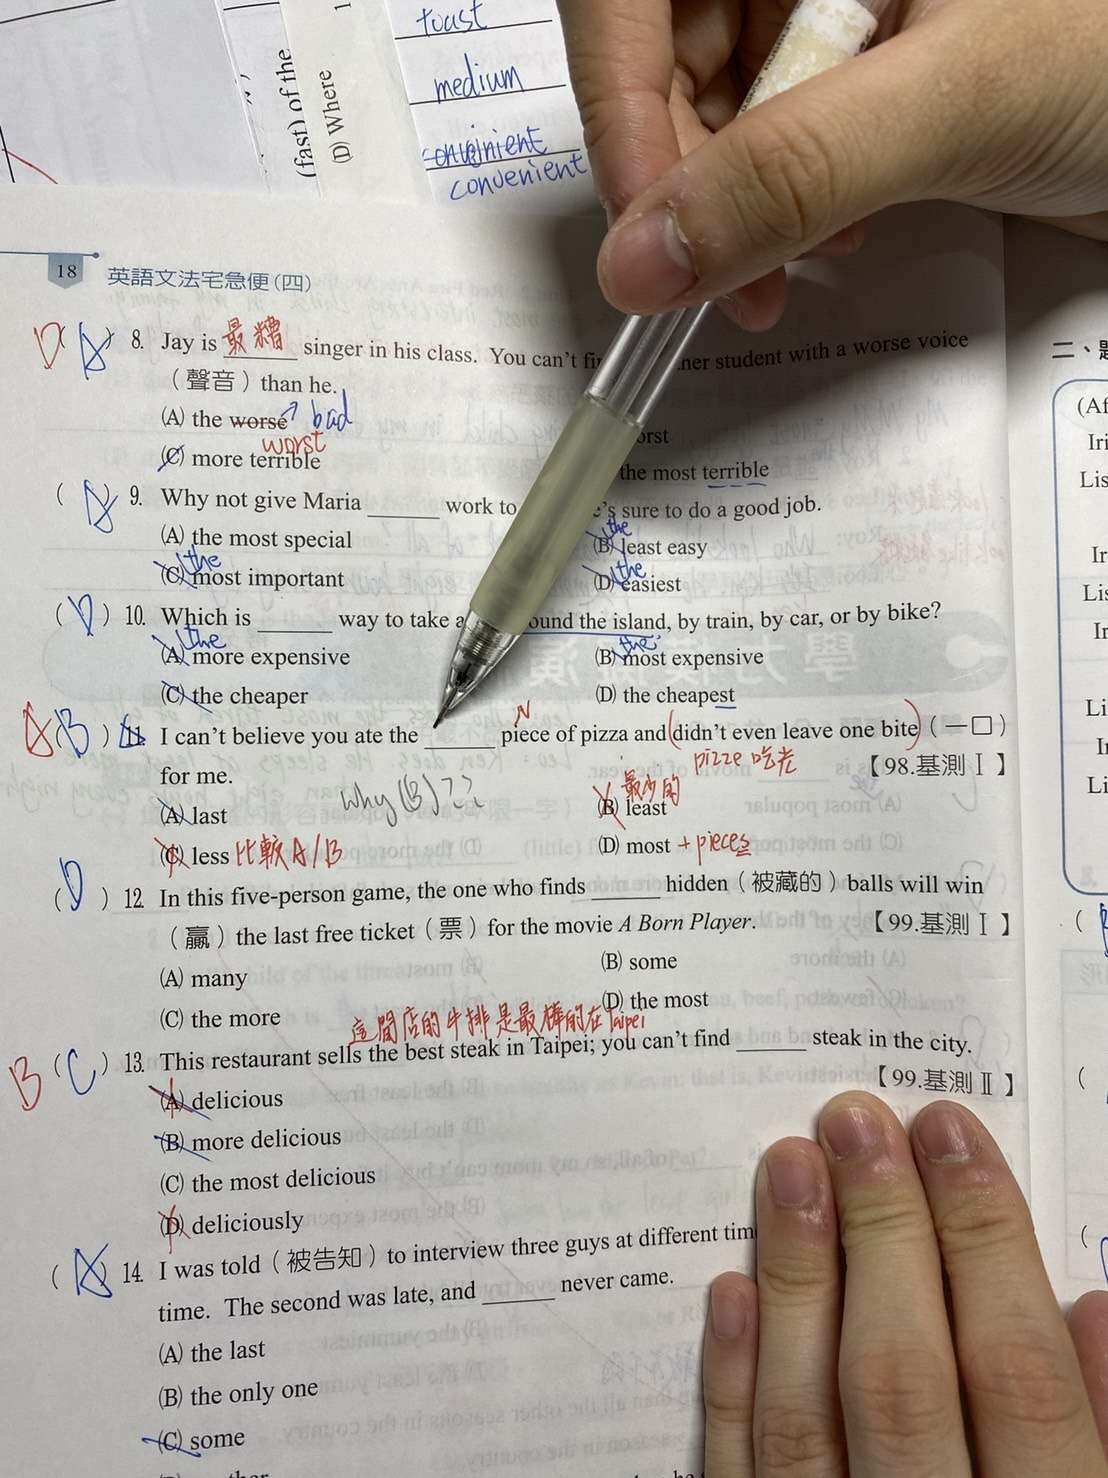 toast
medium
convinient
convenient
(fast) of the
(D) Where
1
18 英語文法宅急便(四)
D ( A ) 8. Jay is 最糟 singer in his class. You can't fi ner student with a worse voice
（聲音）than he.
(A) the worse → bad
worst
orst
(C) more terrible
the most terrible
( A ) 9. Why not give Maria ______ work to e's sure to do a good job.
(A) the most special
(B) the least easy
(C) the most important
(D) the easiest
( D ) 10. Which is ______ way to take a ound the island, by train, by car, or by bike?
(A) the more expensive
(B) the most expensive
(C) the cheaper
(D) the cheapest
A ( B ) 11. I can't believe you ate the ______ piece of pizza and (didn't even leave one bite)（一口）
N
for me.
pizze 吃光
【98.基測Ⅰ】
(A) last
why (B)??
(B) least 最少的
(C) less 比較 A/B
(D) most + pieces
( D ) 12. In this five-person game, the one who finds ______ hidden（被藏的）balls will win
（贏）the last free ticket（票）for the movie A Born Player.
【99.基測Ⅰ】
(A) many
(B) some
(C) the more
(D) the most
這間店的牛排是最棒的在Taipei
B ( C ) 13. This restaurant sells the best steak in Taipei; you can't find ______ steak in the city.
【99.基測Ⅱ】
(A) delicious
(B) more delicious
(C) the most delicious
(D) deliciously
( A ) 14. I was told（被告知）to interview three guys at different tim
time. The second was late, and ______ never came.
(A) the last
(B) the only one
(C) some
ther
二、題
(Af
Iri
Lis
Ir
Lis
Ir
Li
Ir
Li
(
(
(